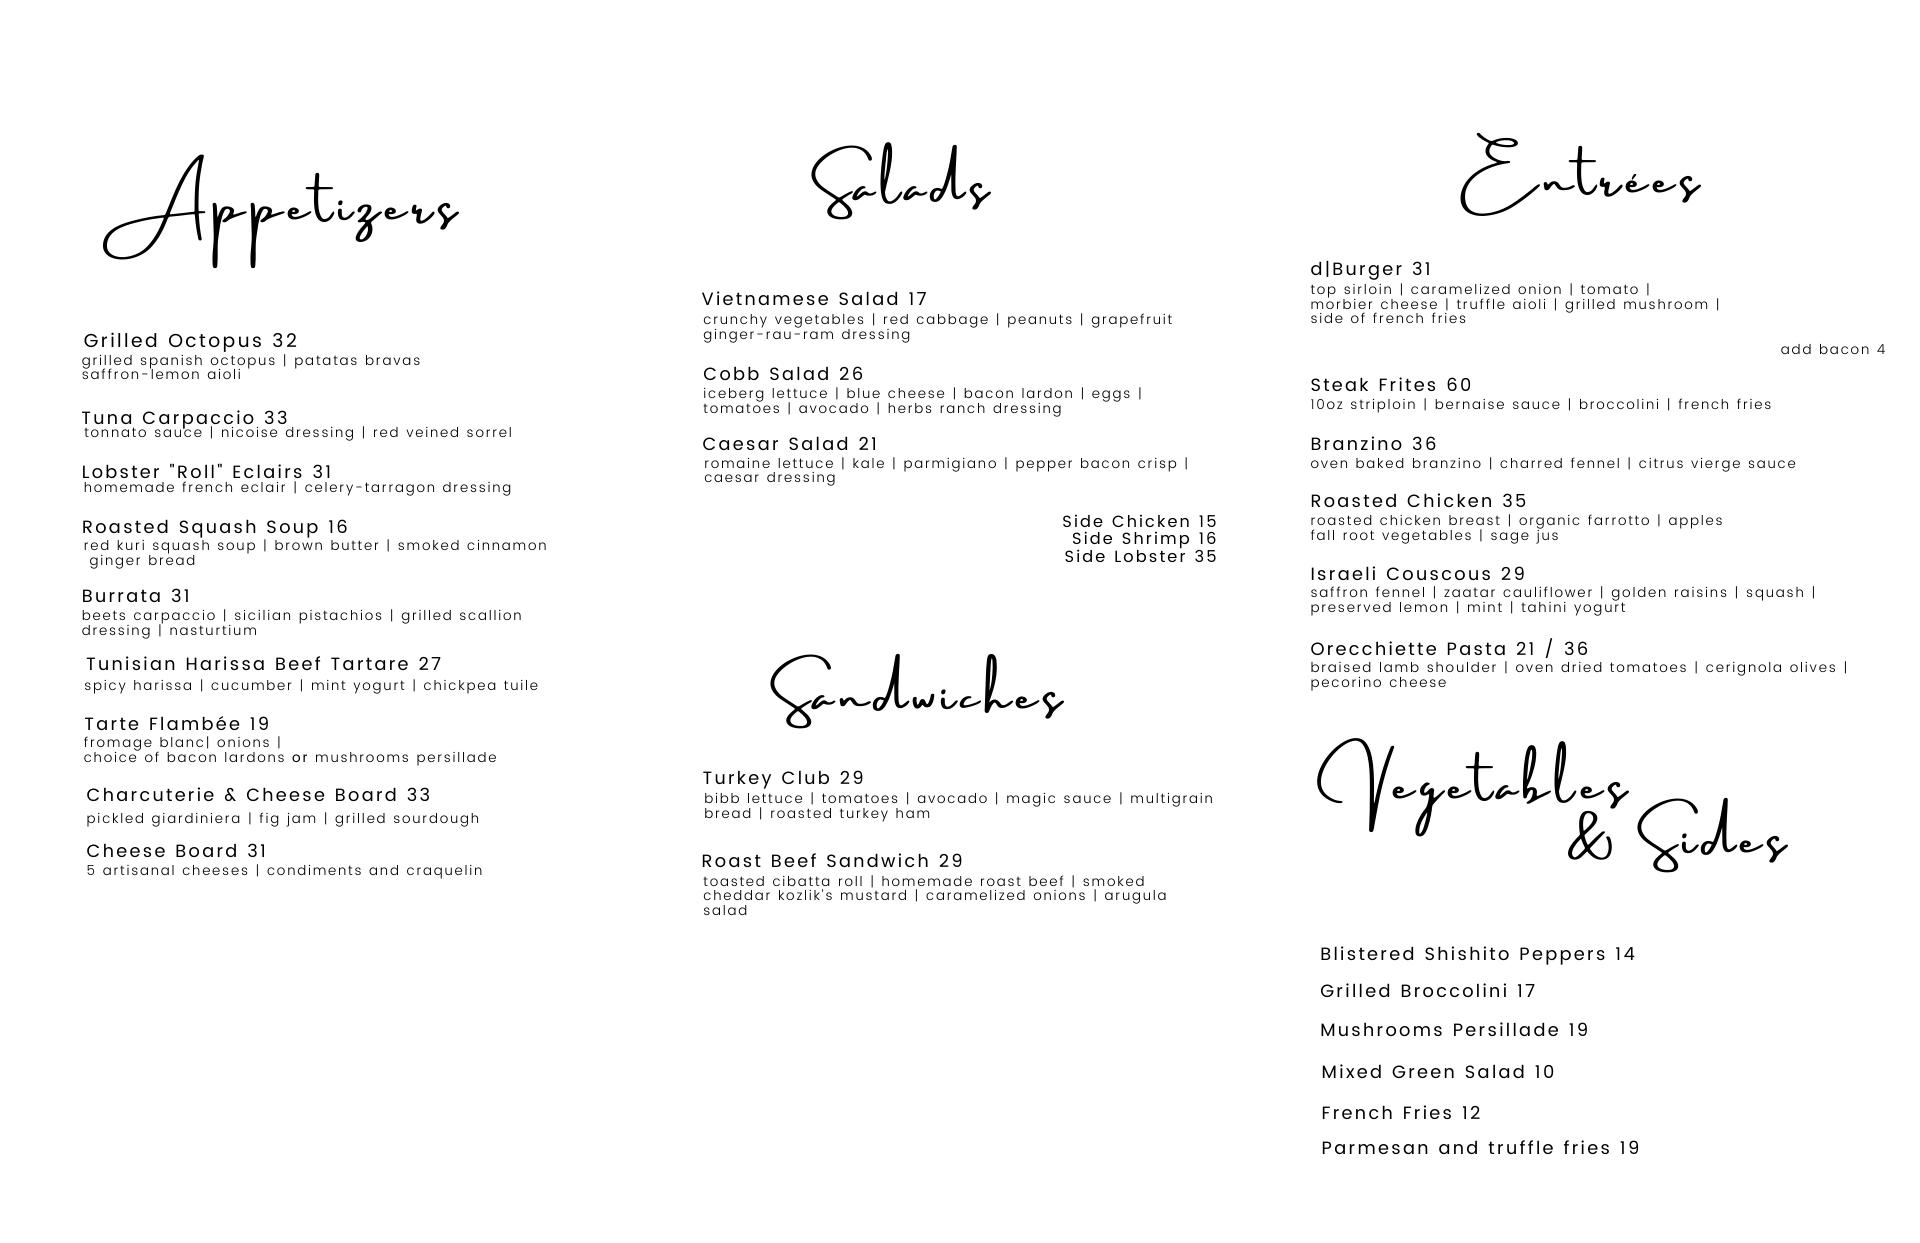 Appetizers
Grilled Octopus 32
grilled spanish octopus | patatas bravas
saffron-lemon aioli
Tuna Carpaccio 33
tonnato sauce | nicoise dressing | red veined sorrel
Lobster "Roll" Eclairs 31
homemade french eclair | celery-tarragon dressing
Roasted Squash Soup 16
red kuri squash soup | brown butter | smoked cinnamon
ginger bread
Burrata 31
beets carpaccio | sicilian pistachios | grilled scallion
dressing | nasturtium
Tunisian Harissa Beef Tartare 27
spicy harissa | cucumber | mint yogurt | chickpea tuile
Tarte Flambée 19
fromage blanc| onions |
choice of bacon lardons or mushrooms persillade
Charcuterie & Cheese Board 33
pickled giardiniera | fig jam | grilled sourdough
Cheese Board 31
5 artisanal cheeses | condiments and craquelin
Salads
Vietnamese Salad 17
crunchy vegetables | red cabbage | peanuts | grapefruit
ginger-rau-ram dressing
Cobb Salad 26
iceberg lettuce | blue cheese | bacon lardon | eggs |
tomatoes | avocado | herbs ranch dressing
Caesar Salad 21
romaine lettuce | kale | parmigiano | pepper bacon crisp |
caesar dressing
Side Chicken 15
Side Shrimp 16
Side Lobster 35
Sandwiches
Turkey Club 29
bibb lettuce | tomatoes | avocado | magic sauce | multigrain
bread | roasted turkey ham
Roast Beef Sandwich 29
toasted cibatta roll | homemade roast beef | smoked
cheddar kozlik's mustard | caramelized onions | arugula
salad
Entrées
d|Burger 31
top sirloin | caramelized onion | tomato |
morbier cheese | truffle aioli | grilled mushroom |
side of french fries
add bacon 4
Steak Frites 60
10oz striploin | bernaise sauce | broccolini | french fries
Branzino 36
oven baked branzino | charred fennel | citrus vierge sauce
Roasted Chicken 35
roasted chicken breast | organic farrotto | apples
fall root vegetables | sage jus
Israeli Couscous 29
saffron fennel | zaatar cauliflower | golden raisins | squash |
preserved lemon | mint | tahini yogurt
Orecchiette Pasta 21 / 36
braised lamb shoulder | oven dried tomatoes | cerignola olives |
pecorino cheese
Vegetables
& Sides
Blistered Shishito Peppers 14
Grilled Broccolini 17
Mushrooms Persillade 19
Mixed Green Salad 10
French Fries 12
Parmesan and truffle fries 19